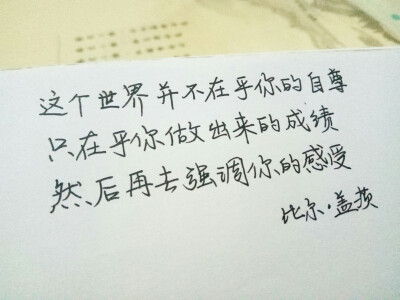 这个世界并不在乎你的自尊
只在乎你做出来的成绩
然后再去强调你的感受
比尔·盖茨